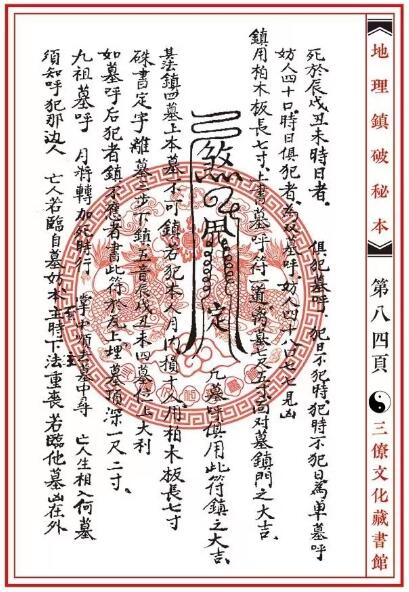 地理鎮破秘本 第八四頁 三僚文化藏書館
死於辰戌丑未時日者。 俱犯墓呼。犯日不犯時,犯時不犯日為单墓呼
妨人四十口,時日俱犯者,為双墓呼,妨人四十八口七七見凶
鎮用柏木板長七寸,上書墓呼符一道,离墓七尺五寸,高对墓鎮門之大吉。
煞 定
凡墓呼俱用此符鎮之大吉
其法鎮四墓上本墓不可鎮,若犯本人月内損十人,用柏木板長七寸
硃書定字離墓三步下鎮五音辰戌丑未四墓位上大利
如墓呼后犯者鎮不應者書此符於瓦上埋墓頂深一尺二寸。
九祖墓呼 月將轉加死時行 掌中順去墓中尋 亡人生相入何墓
須知呼犯那边人 亡人若臨自墓好 本主時下法重喪若臨他墓凶在外